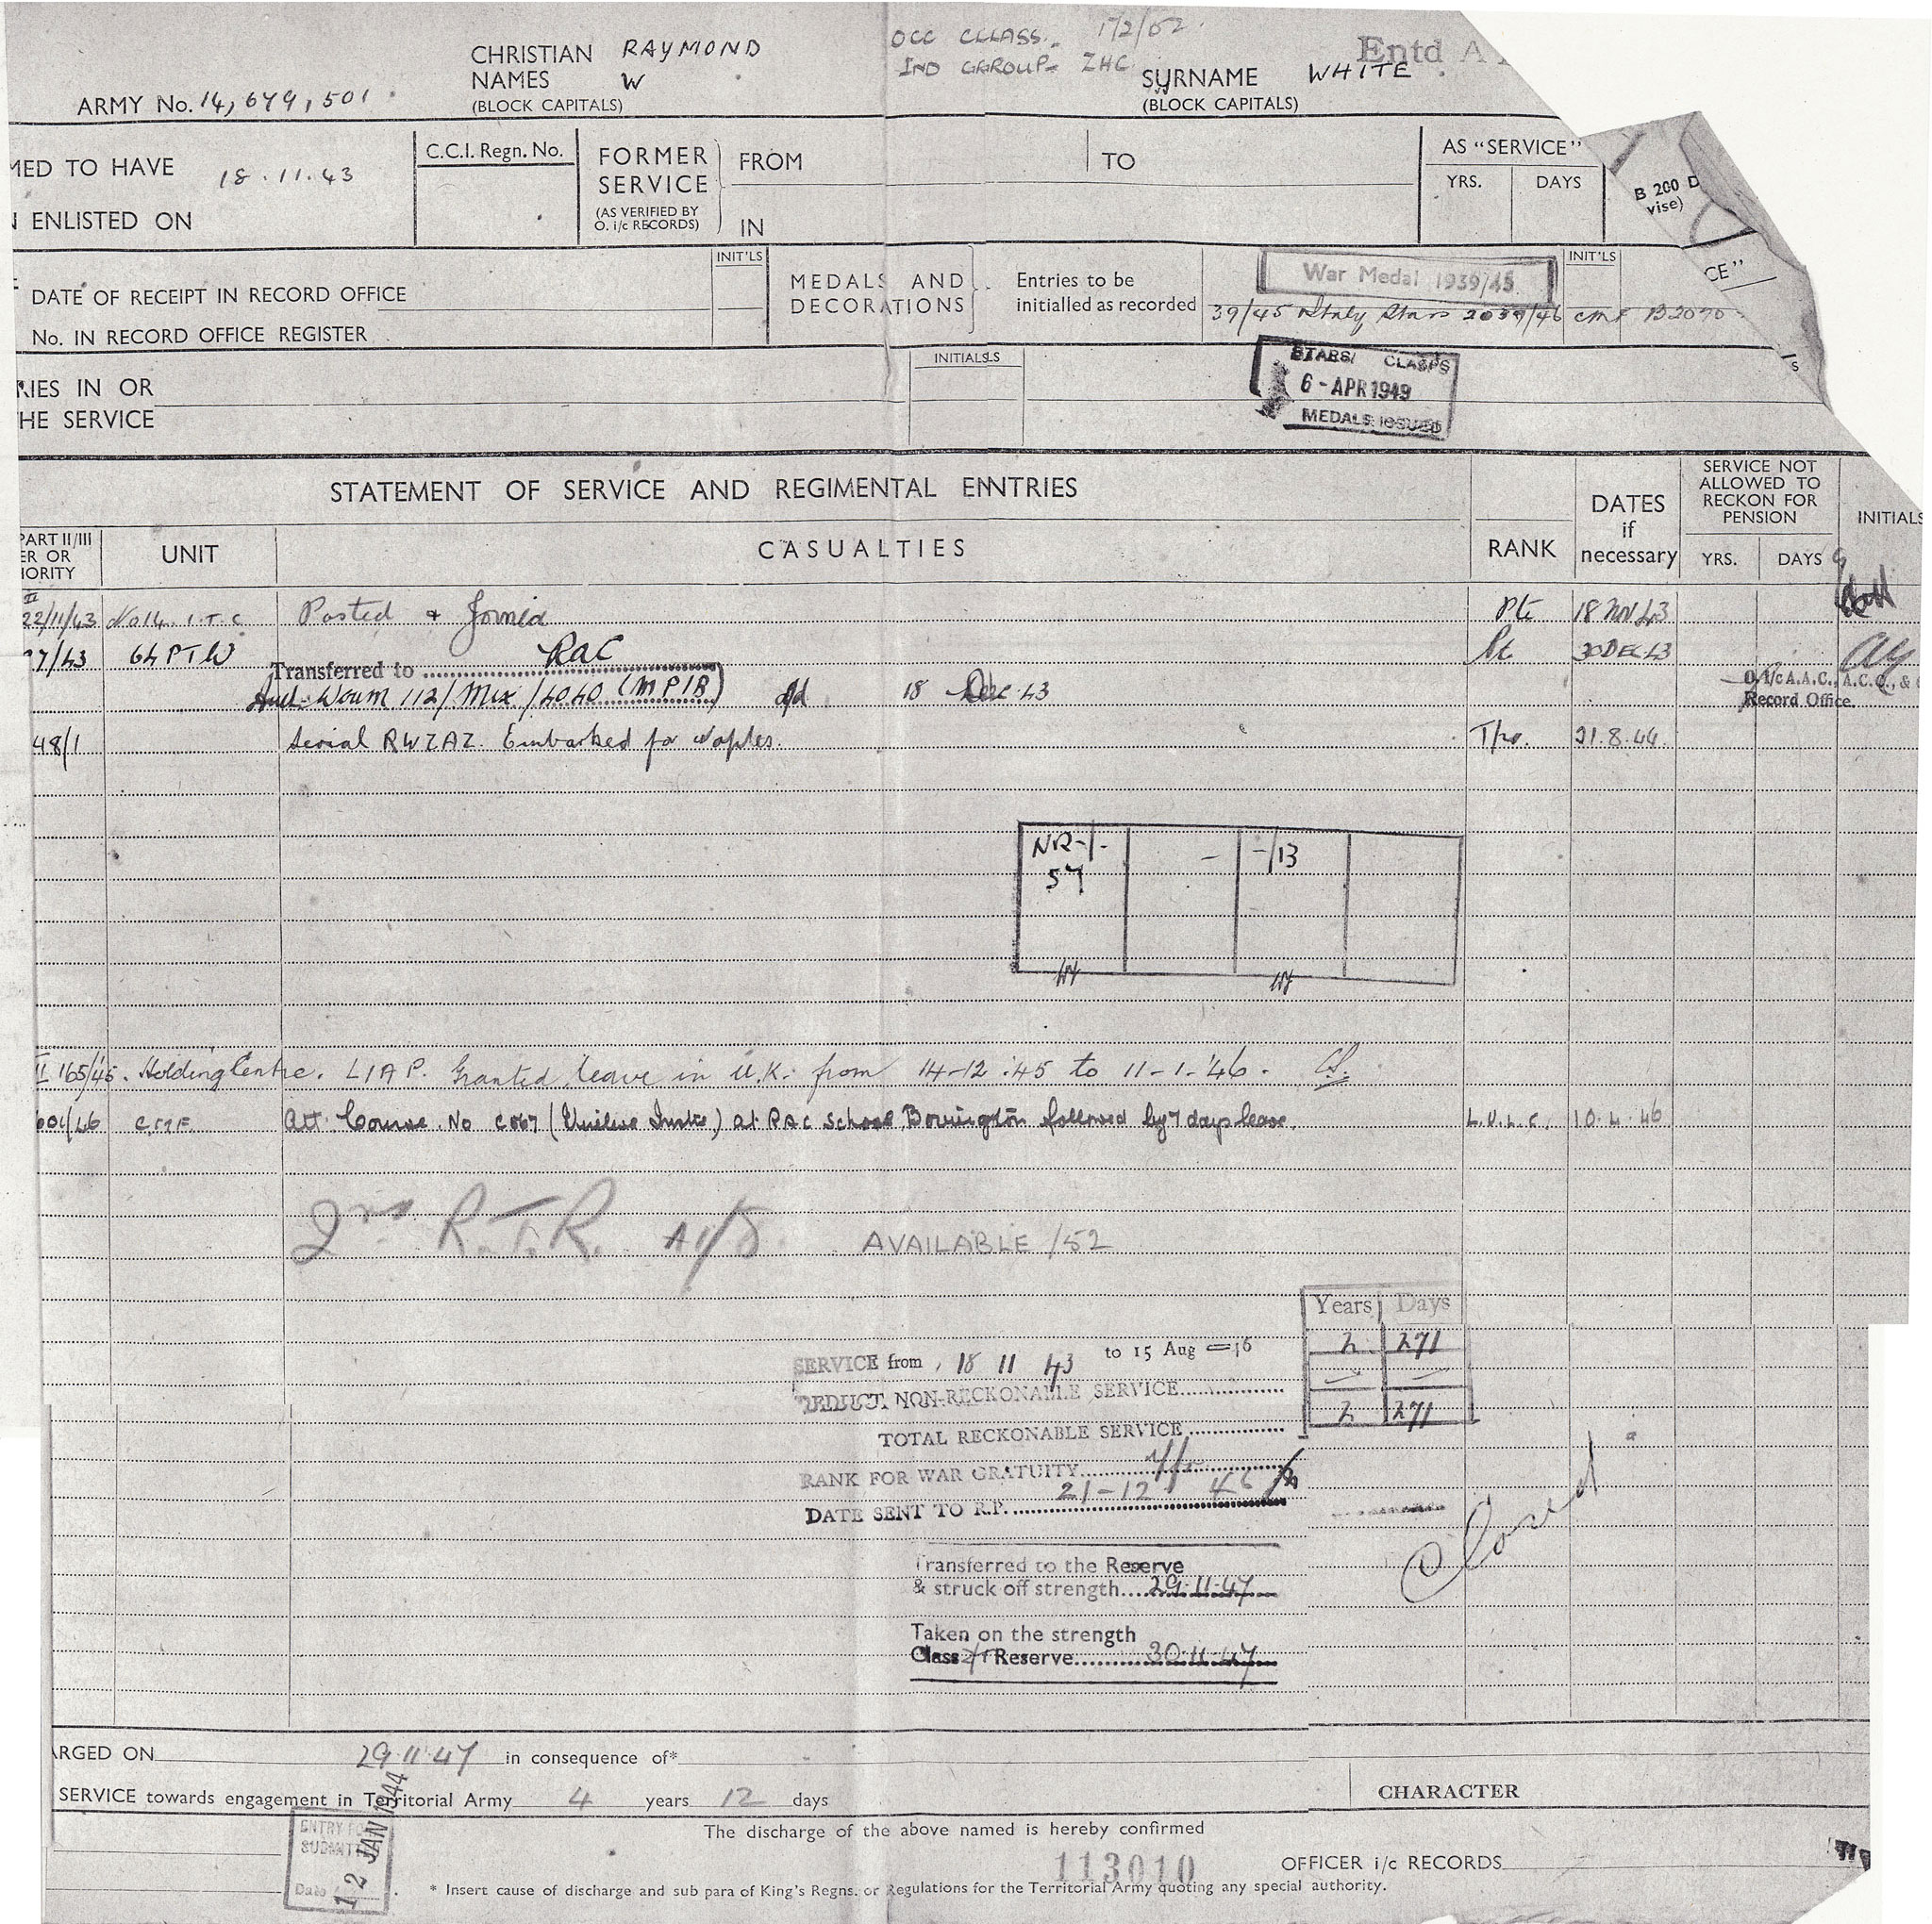 OCC CLLASS. 1/2/52
CHRISTIAN NAMES (BLOCK CAPITALS) RAYMOND W
IND GGROUP- ZHC
Entd A
SURNAME (BLOCK CAPITALS) WHITE
ARMY No. 14,679,501
MED TO HAVE
N ENLISTED ON
18.11.43
C.C.I. Regn. No.
FORMER SERVICE
(AS VERIFIED BY O. i/c RECORDS)
FROM
TO
IN
AS "SERVICE"
YRS. DAYS
B 200 D
vise)
CE"
DATE OF RECEIPT IN RECORD OFFICE
No. IN RECORD OFFICE REGISTER
INIT'LS
MEDALS AND DECORATIONS
Entries to be initialled as recorded
War Medal 1939/45
39/45 Italy Stars 2039/46
INIT'LS
B2070
RIES IN OR
HE SERVICE
INITIALS
STARS/ CLASPS
6 - APR 1949
MEDALS ISSUED
STATEMENT OF SERVICE AND REGIMENTAL ENNTRIES
PART II/III
ER OR
IORITY
UNIT
CASUALTIES
RANK
DATES if necessary
SERVICE NOT ALLOWED TO RECKON FOR PENSION
YRS. DAYS
INITIALS
22/11/43 No14. I.T.C Posted & Joined Pte 18 NOV 43
7/43 64 PTW Transferred to RAC Pt. 30 DEC 43
112/Mix/4040 (MP1B) d/d 18 Dec 43
O. i/c A.A.C., A.C.C., &
Record Office.
48/1 Serial RWZAZ. Embarked for Naples. Tpr. 21.8.44.
NR-/- 57 - -/13
II 165/45. Holding Centre. LIAP. Granted leave in U.K. from 14-12-45 to 11-1-46.
601/46 C.M.F. Att. Course No C067 at RAC School Bovington followed by 7 days leave. 10.4.46
R.T.R.
AVAILABLE /52
Years Days
SERVICE from 18 11 43 to 15 Aug 46 2 271
DEDUCT NON-RECKONABLE SERVICE
TOTAL RECKONABLE SERVICE 2 271
RANK FOR WAR GRATUITY
DATE SENT TO R.P. 21-12 46
Closed
Transferred to the Reserve
& struck off strength 29.11.47
Taken on the strength
Class Reserve 30.11.47
ARGED ON 29.11.47 in consequence of*
SERVICE towards engagement in Territorial Army 4 years 12 days
CHARACTER
The discharge of the above named is hereby confirmed
ENTRY FO
SUBMITT
Date
12 JAN 1944
113010
OFFICER i/c RECORDS
* Insert cause of discharge and sub para of King's Regns. or Regulations for the Territorial Army quoting any special authority.